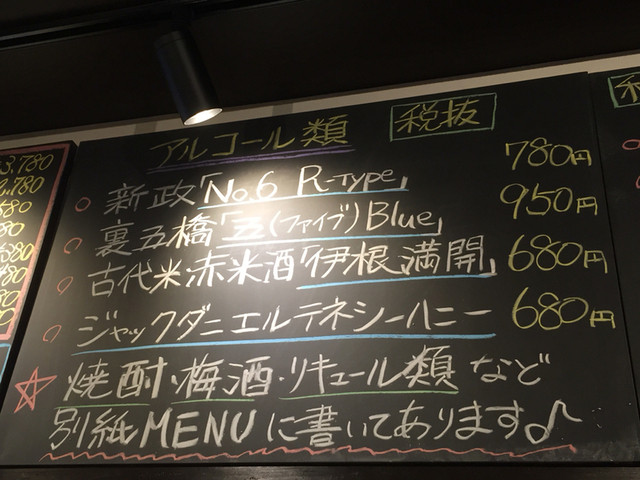 アルコール類 税抜
新政「No.6 R-TYPE」 780円
裏五橋「五(ファイブ)Blue」 950円
古代米赤米酒「伊根満開」 680円
ジャックダニエルテネシーハニー 680円
焼酎、梅酒・リキュール類 など
別紙MENUに書いてあります♪
3,780
680